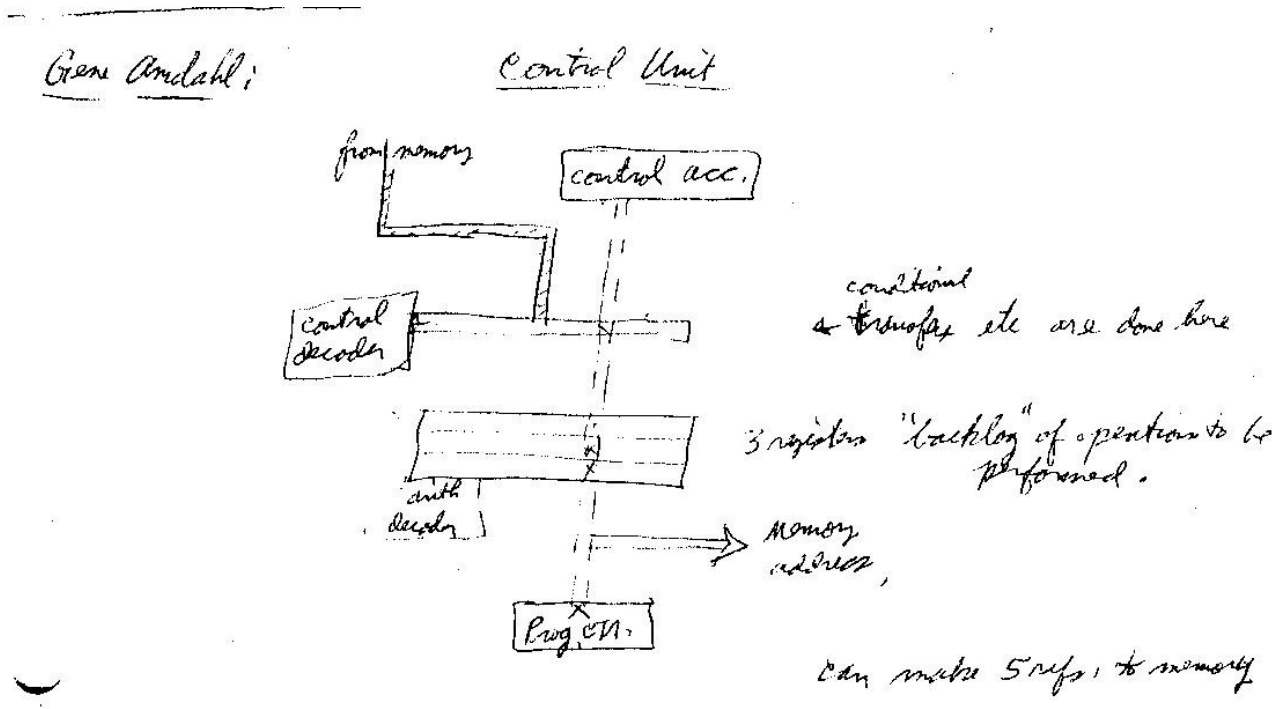 Gene Amdahl:
Control Unit
from memory
control acc.
control
decoder
conditional
transfer etc are done here
3 registers "backlog" of operations to be
performed.
arith
decoder
Memory
address,
Prog. ctr.
can make 5 refs, to memory